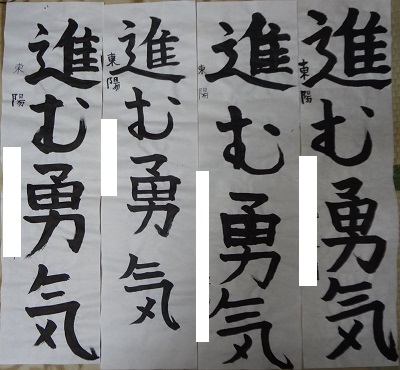 進む勇気
東陽
進む勇気
東陽
進む勇気
東陽
進む勇気
東陽